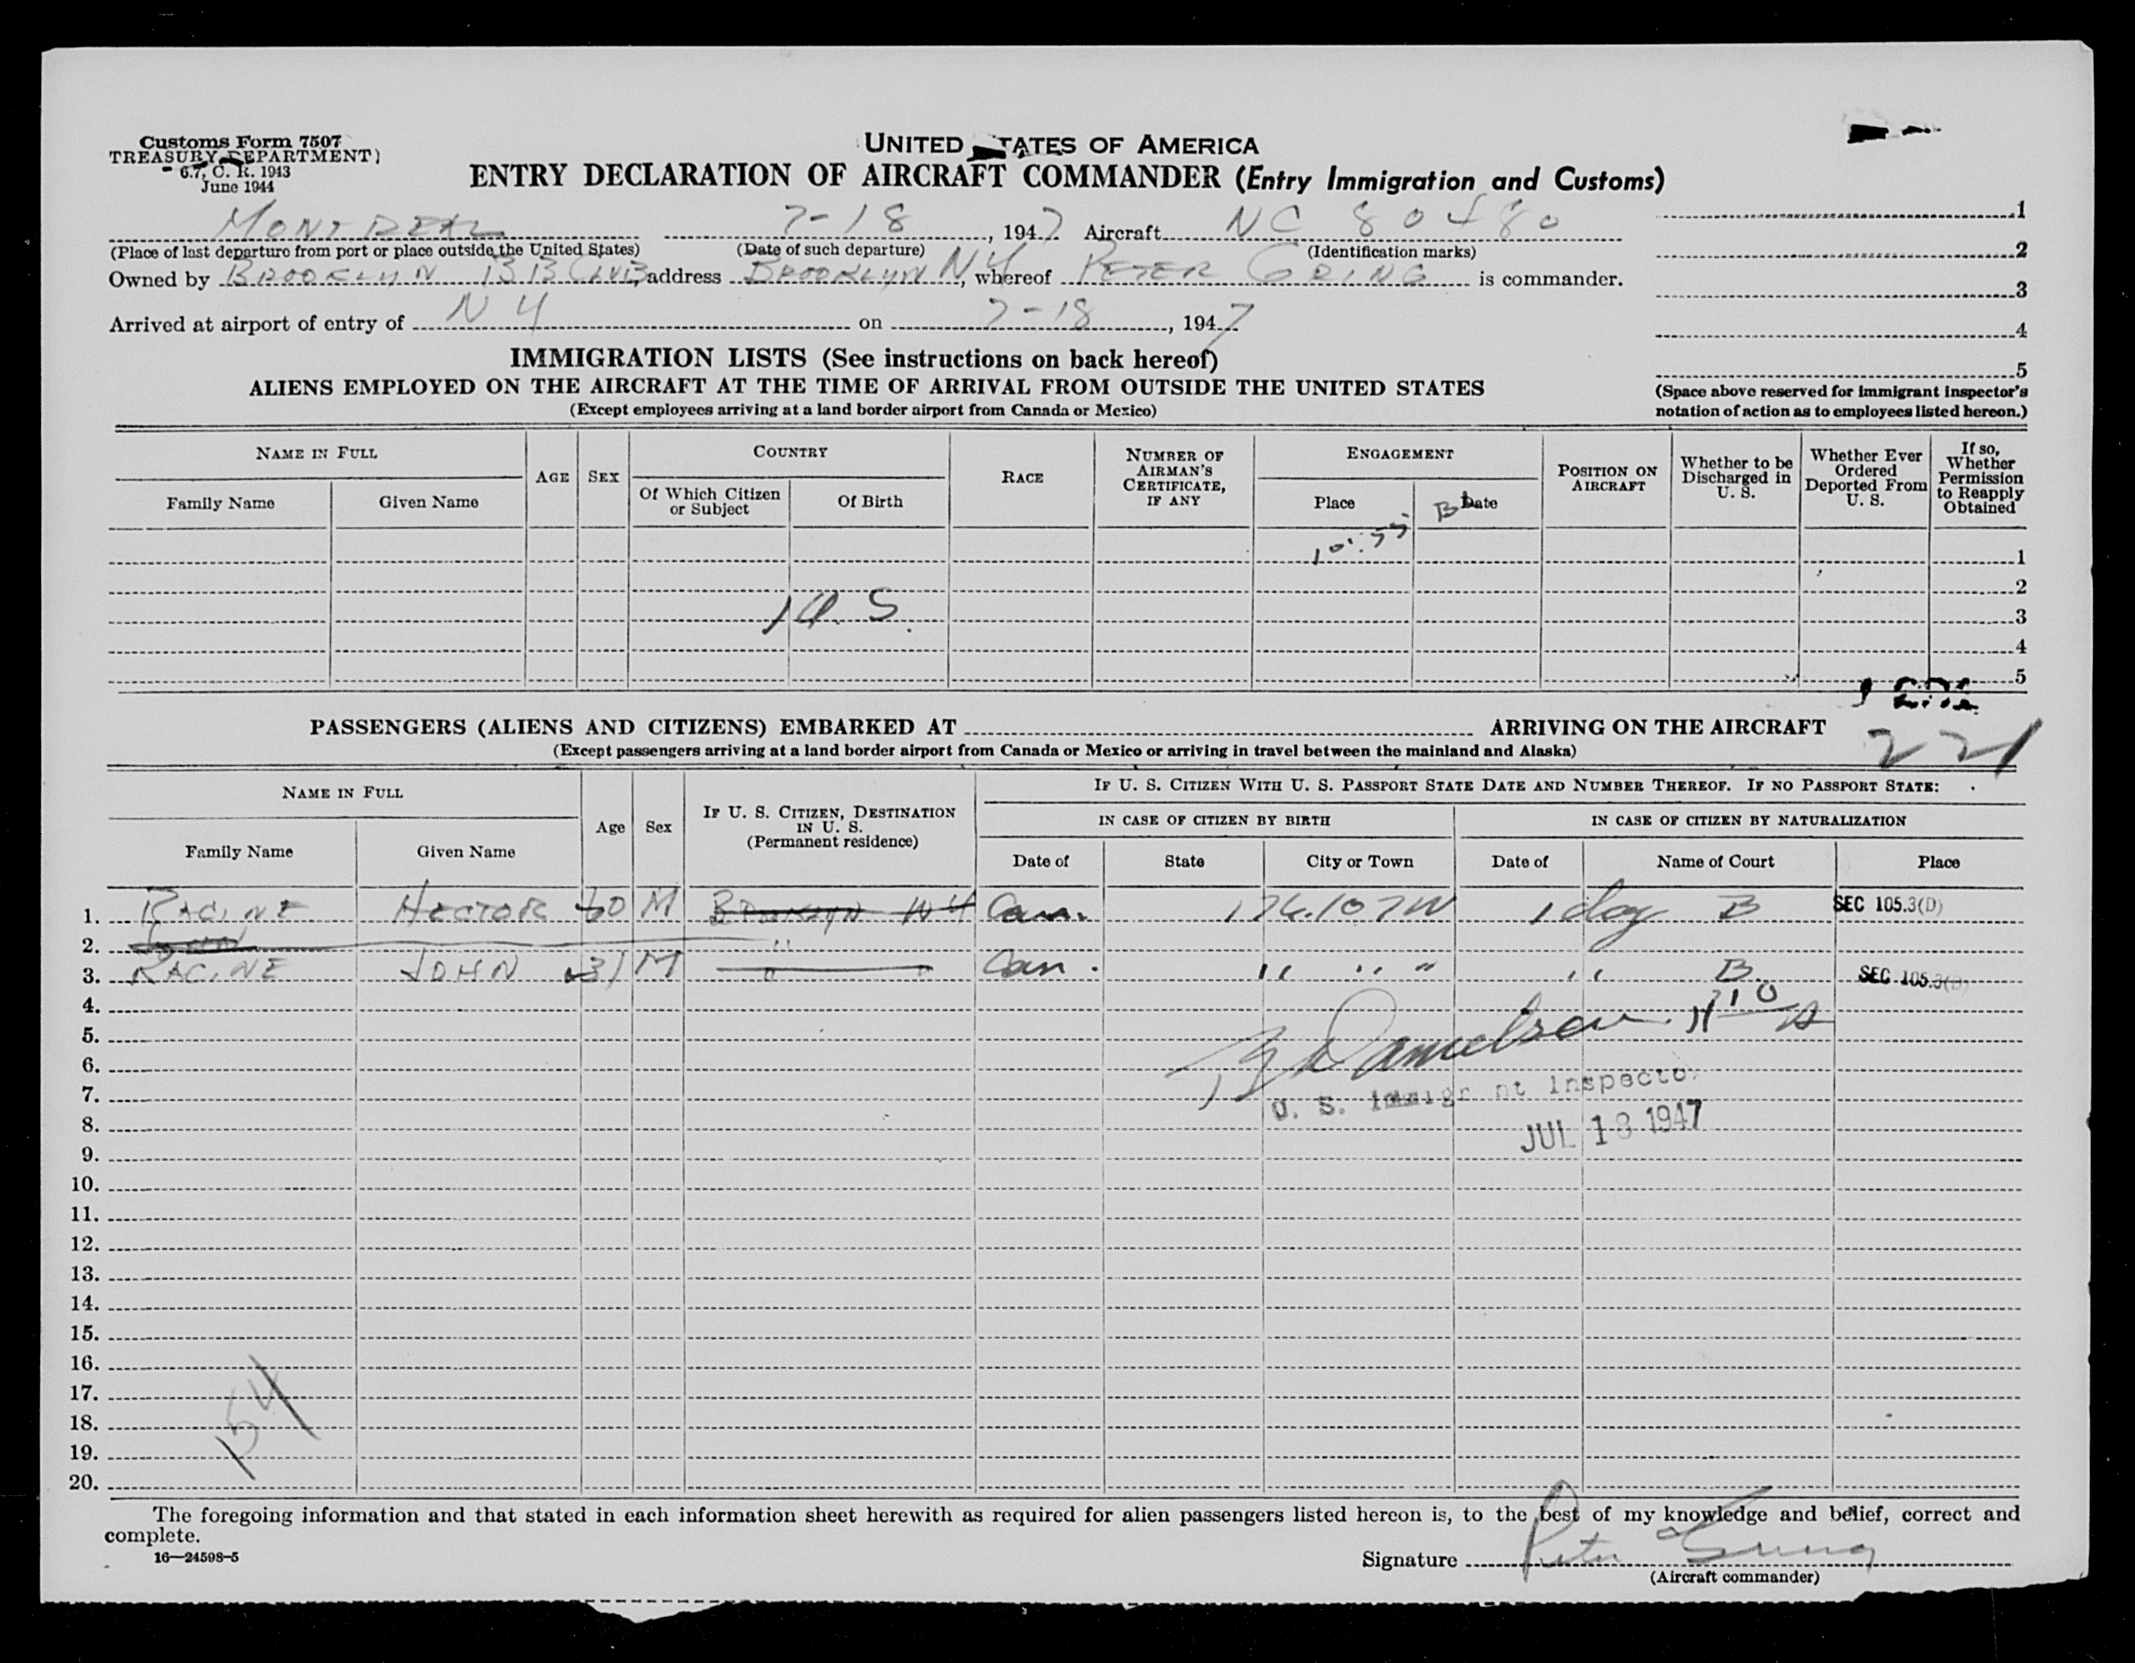 Customs Form 7507
TREASURY DEPARTMENT)
6.7, C. R. 1943
June 1944
UNITED STATES OF AMERICA
ENTRY DECLARATION OF AIRCRAFT COMMANDER (Entry Immigration and Customs)
MONTREAL 7-18, 1947 Aircraft NC 80480
(Place of last departure from port or place outside the United States) (Date of such departure) (Identification marks)
Owned by BROOKLYN BB CLUB, address BROOKLYN NY, whereof PETER GRING is commander.
Arrived at airport of entry of NY on 7-18, 1947
1
2
3
4
5
(Space above reserved for immigrant inspector's
notation of action as to employees listed hereon.)
IMMIGRATION LISTS (See instructions on back hereof)
ALIENS EMPLOYED ON THE AIRCRAFT AT THE TIME OF ARRIVAL FROM OUTSIDE THE UNITED STATES
(Except employees arriving at a land border airport from Canada or Mexico)
NAME IN FULL
Family Name Given Name
AGE SEX
COUNTRY
Of Which Citizen or Subject Of Birth
RACE
NUMBER OF AIRMAN'S CERTIFICATE, IF ANY
ENGAGEMENT
Place Date
POSITION ON AIRCRAFT
Whether to be Discharged in U. S.
Whether Ever Ordered Deported From U. S.
If so, Whether Permission to Reapply Obtained
10:55
1
2
3
4
5
PASSENGERS (ALIENS AND CITIZENS) EMBARKED AT ARRIVING ON THE AIRCRAFT
(Except passengers arriving at a land border airport from Canada or Mexico or arriving in travel between the mainland and Alaska)
221
NAME IN FULL
Family Name Given Name
Age Sex
IF U. S. CITIZEN, DESTINATION IN U. S.
(Permanent residence)
IF U. S. CITIZEN WITH U. S. PASSPORT STATE DATE AND NUMBER THEREOF. IF NO PASSPORT STATE:
IN CASE OF CITIZEN BY BIRTH IN CASE OF CITIZEN BY NATURALIZATION
Date of State City or Town Date of Name of Court Place
1. RACINE HECTOR 60 M BROOKLYN NY Can. 176.107W 1 day B SEC 105.3(D)
2.
3. RACINE JOHN 31 M " " Can. " " " " " B SEC 105.3(D)
4.
5. Danielsen
6.
7. U. S. Immigrant Inspector
8. JUL 18 1947
9.
10.
11.
12.
13.
14.
15.
16.
17. 154
18.
19.
20.
The foregoing information and that stated in each information sheet herewith as required for alien passengers listed hereon is, to the best of my knowledge and belief, correct and
complete.
16—24598-5
Signature Peter Gring
(Aircraft commander)